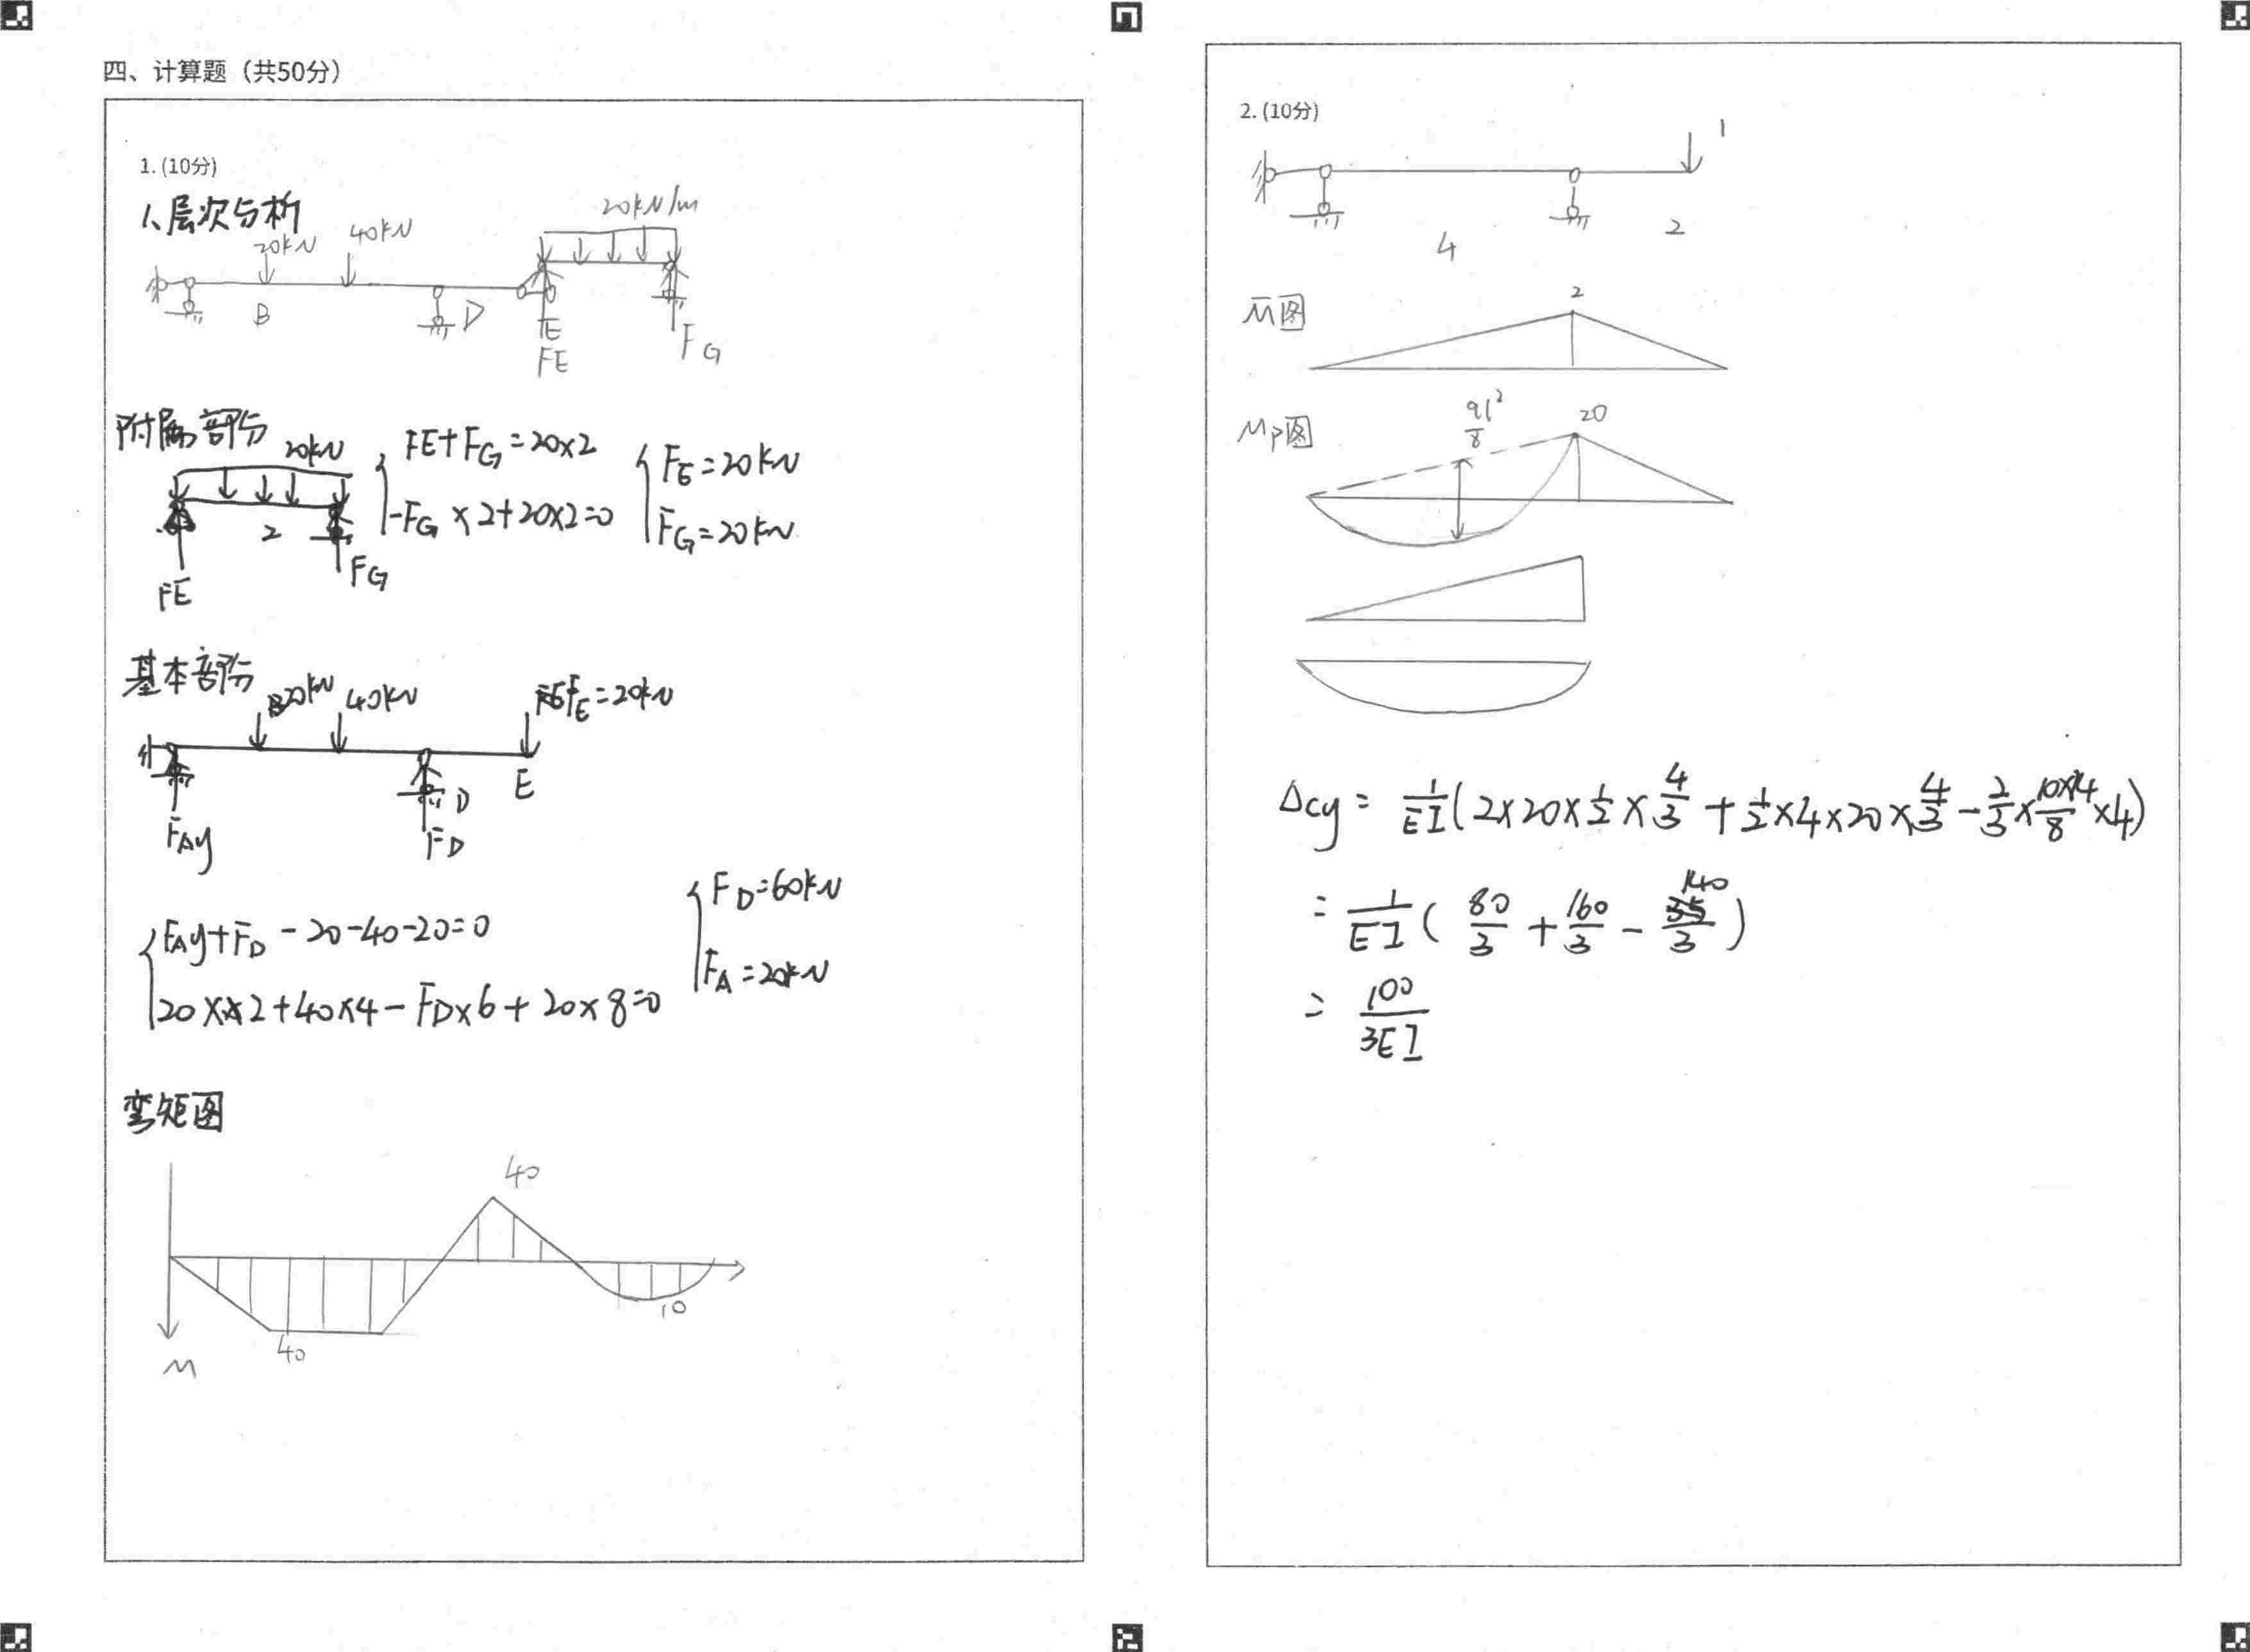 四、计算题（共50分）
1. (10分)
1、层次分析
20kN 40kN 20kN/m
B D E
FE FG
附属部分
20kN
2
FE FG
FE+FG=20×2
-FG×2+20×2=0
FE=20kN
FG=20kN
基本部分
20kN 40kN FE=20kN
D E
FAy FD
FAy+FD-20-40-20=0
20××2+40×4-FD×6+20×8=0
FD=60kN
FA=20kN
弯矩图
40
10
40
M
2. (10分)
1
4 2
M̄图
2
MP图
ql²/8 20
Δcy= 1/EI(2×20×1/2×4/3+1/2×4×20×4/3-2/3×10×14/8×4)
= 1/EI(80/3+160/3-140/3)
= 100/3EI